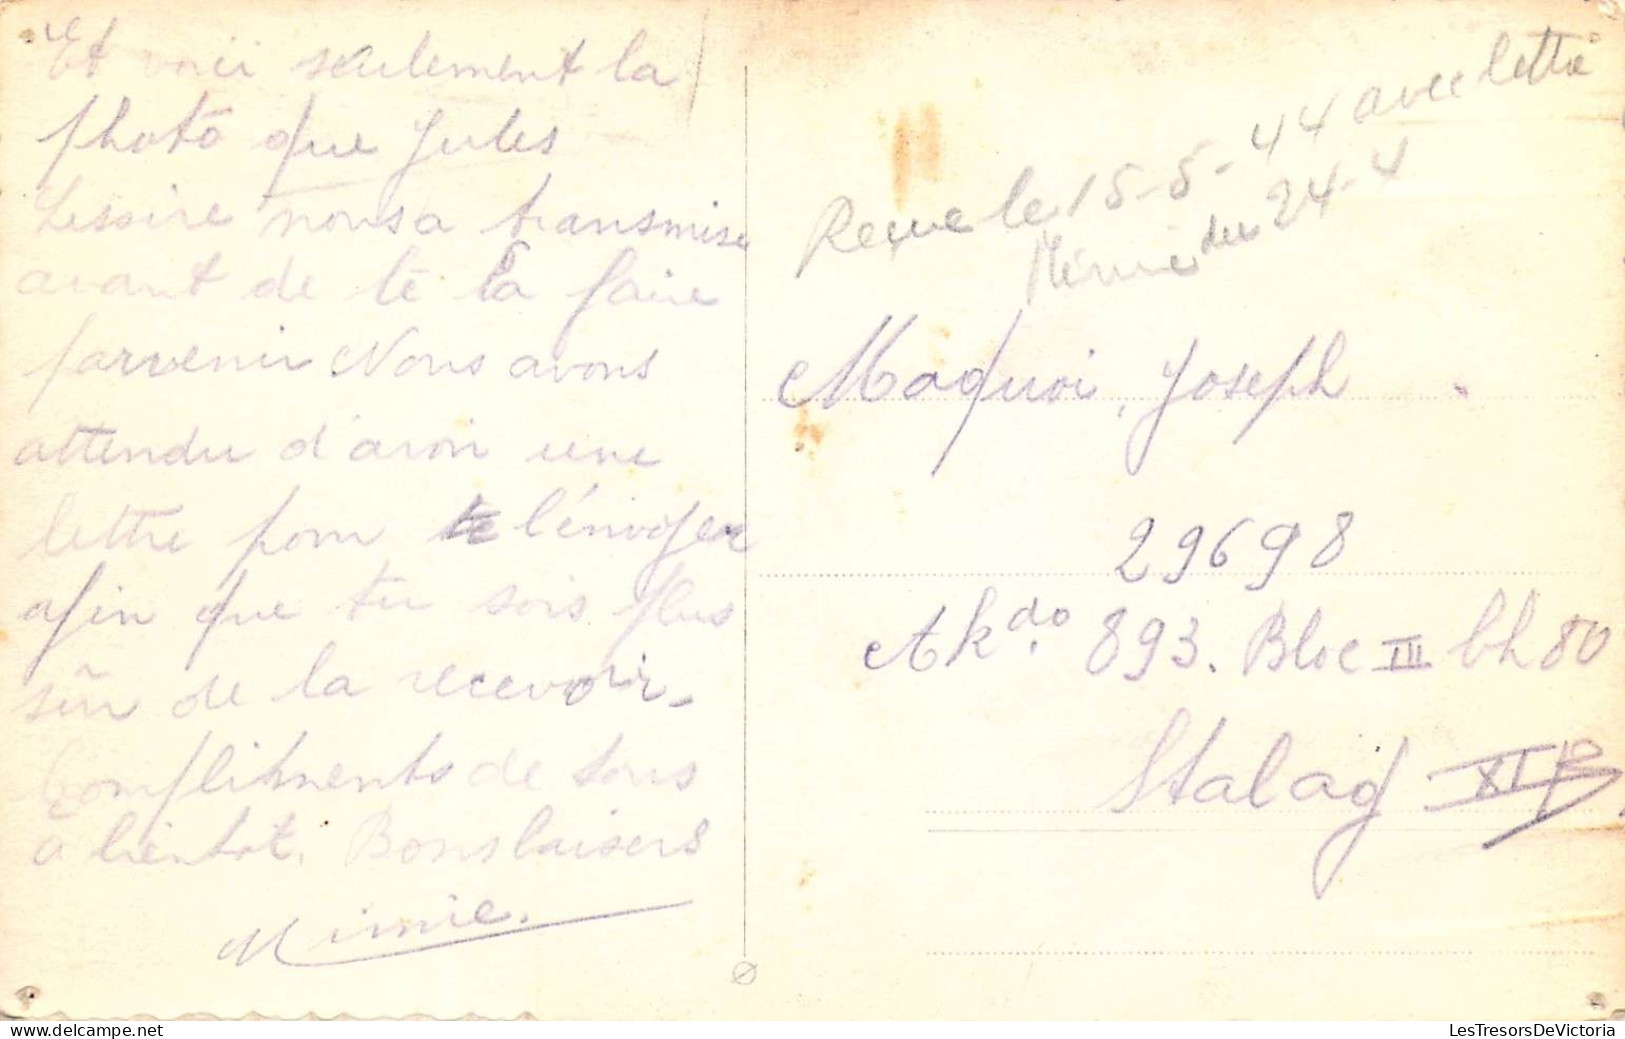 Et voici seulement la
photo que Jules
Lessire nous a transmise
avant de te la faire
parvenir Nous avons
attendu d'avoir une
lettre pour l'énvoyer
afin que tu sois plus
sûr de la recevoir.
Compliments de tous
à bientot. Bons baisers
Mimie.
Reçue le 15-5-44 avec lettre
Mimie du 24-4
Maquoi, Joseph
29698
Akdo. 893. Bloc III bh 80
Stalag XI B
LesTresorsDeVictoria